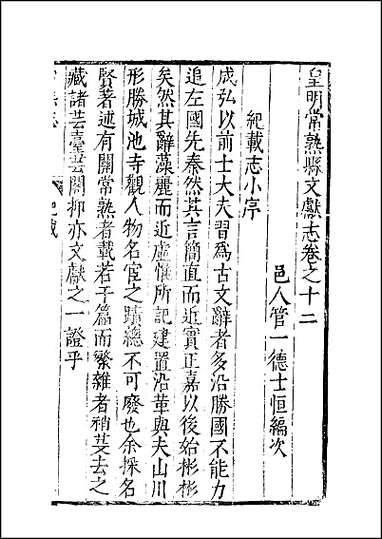 皇明常熟縣文獻志卷之十二
邑人管一德士恒編次
紀載志小序
成弘以前士大夫習爲古文辭者多沿勝國不能力
追左國先秦然其言簡直而近實正嘉以後始彬彬
矣然其辭藻麗而近虛惟所記建置沿革與夫山川
形勝城池寺觀人物名宦之蹟總不可廢也余採名
賢著述有關常熟者載若干篇而繁雜者稍芟去之
藏諸芸臺芸閣抑亦文獻之一證乎